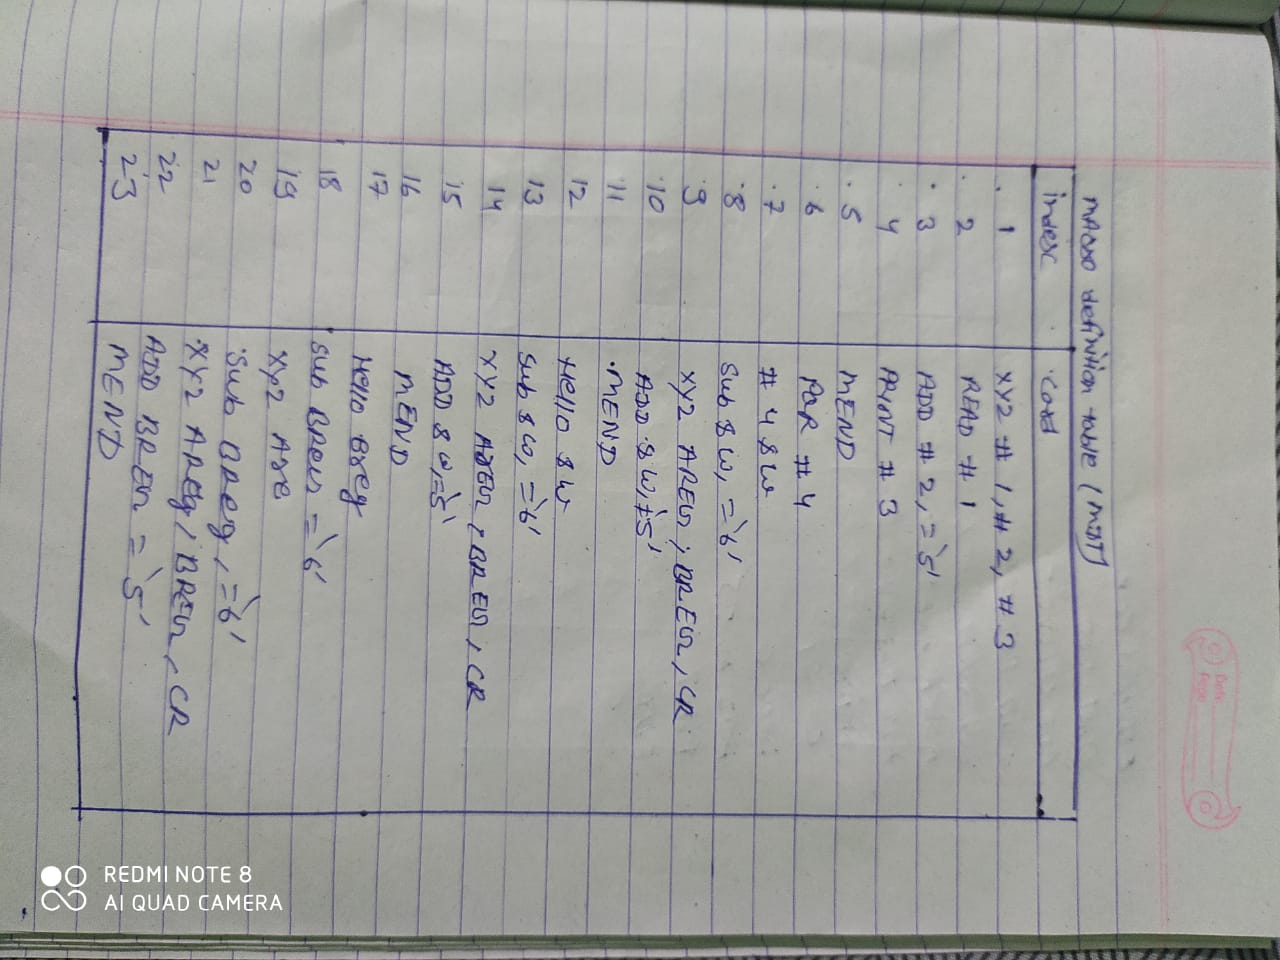 Date
Page
MAcro definition table (MDT)
index card
1 XYZ # 1, # 2, # 3
2 READ # 1
3 ADD # 2, = '5'
4 PRINT # 3
5 MEND
6 PQR # 4
7 # 4 &W
8 Sub &W, = '6'
9 XYZ AREG, BREG, CR
10 ADD &W, = '5'
11 MEND
12 Hello &W
13 Sub &W, = '6'
14 XYZ AREG, BREG, CR
15 ADD &W, = '5'
16 MEND
17 Hello Breg
18 Sub BREG = '6'
19 XYZ Are
20 Sub BReg, = '6'
21 XYZ AReg, BREG, CR
22 ADD BREG = '5'
23 MEND
REDMI NOTE 8
AI QUAD CAMERA